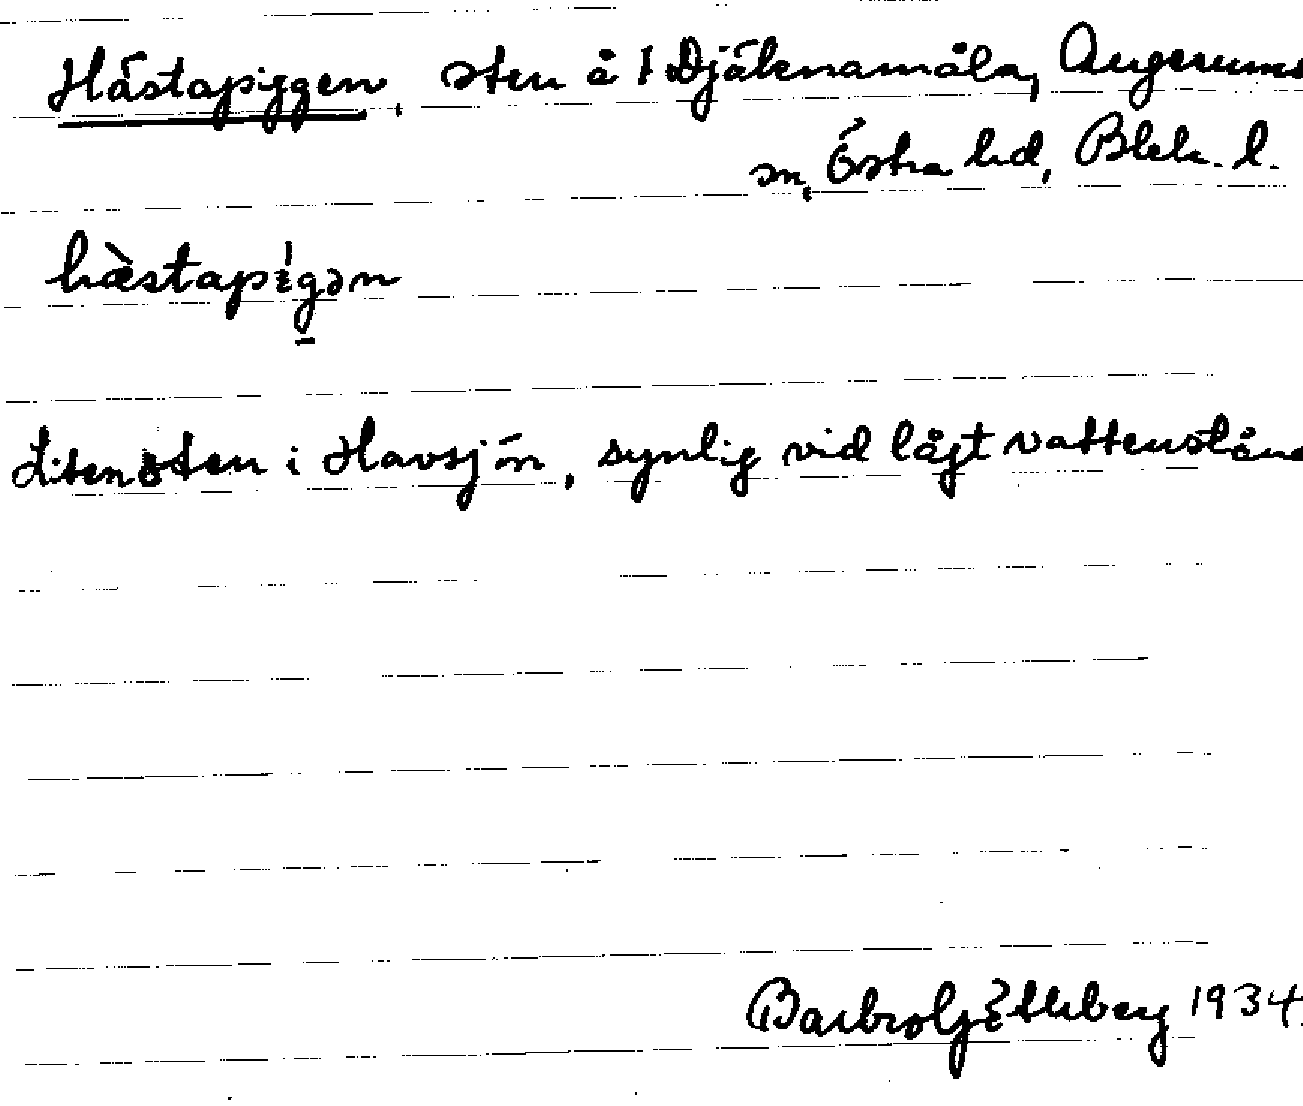 Hästapiggen, sten å 1 Djäknamåla, Augerums
sn, Östra hd, Blek. l.
hæ̀stapıgən
Liten sten i Havsjön, synlig vid lågt vattenstånd
Barbro 1934.